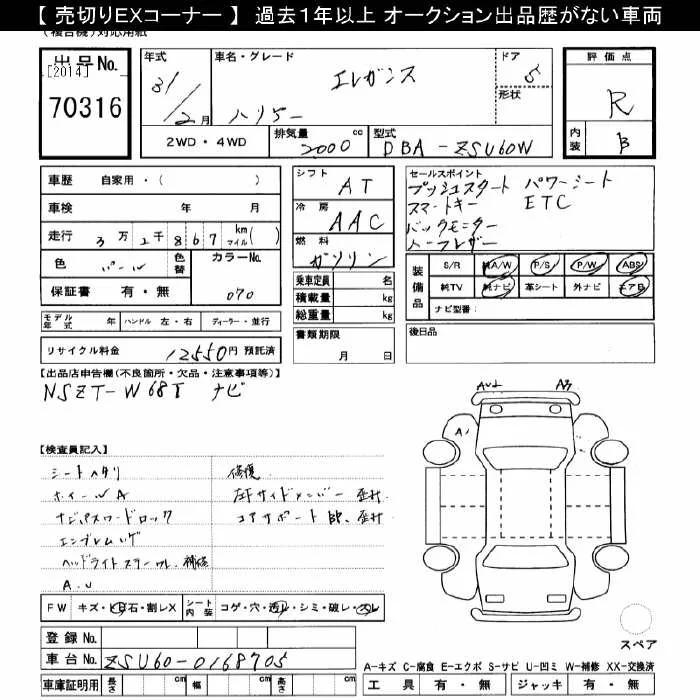 【 売切りEXコーナー 】 過去1年以上 オークション出品歴がない車両
(複合機)対応用紙
出品No.
[2014]
70316
年式
31/2月
車名・グレード
ハリアー
エレガンス
ドア
5
形状
評価点
R
内装
B
2WD・4WD
排気量
2000cc
型式
DBA-ZSU60W
車歴 自家用・( )
車検 年 月
走行 3万2千867 km マイル( )
色 パール
色替
カラーNo.
070
保証書 有・無
シフト
AT
冷房
AAC
燃料
ガソリン
乗車定員 名
積載量 kg
総重量 kg
セールスポイント
プッシュスタート パワーシート
スマートキー ETC
バックモニター
ハーフレザー
装備品
S/R A/W P/S P/W ABS
純TV 純ナビ 革シート 外ナビ エアB
ナビ型番:
モデル年式 年 ハンドル 左・右 ディーラー・並行
書類期限
月 日
後日品
リサイクル料金 12550円 預託済
【出品店申告欄(不良箇所・欠品・注意事項等)】
NSZT-W68T ナビ
【検査員記入】
シートヘタリ
ホイールA
ナビパスワードロック
エンブレム
ヘッドライト
A.U
修復
左Fサイドメンバー 歪み
コアサポート
A
スペア
FW キズ・ヒ石・割レX
シート内装 コゲ・穴・汚レ・シミ・破レ・スレ
登録No.
車台No. ZSU60-0168705
車庫証明用 長さ cm 幅 cm 高さ cm
A-キズ C-腐食 E-エクボ S-サビ U-凹ミ W-補修 XX-交換済
工具 有・無 ジャッキ 有・無